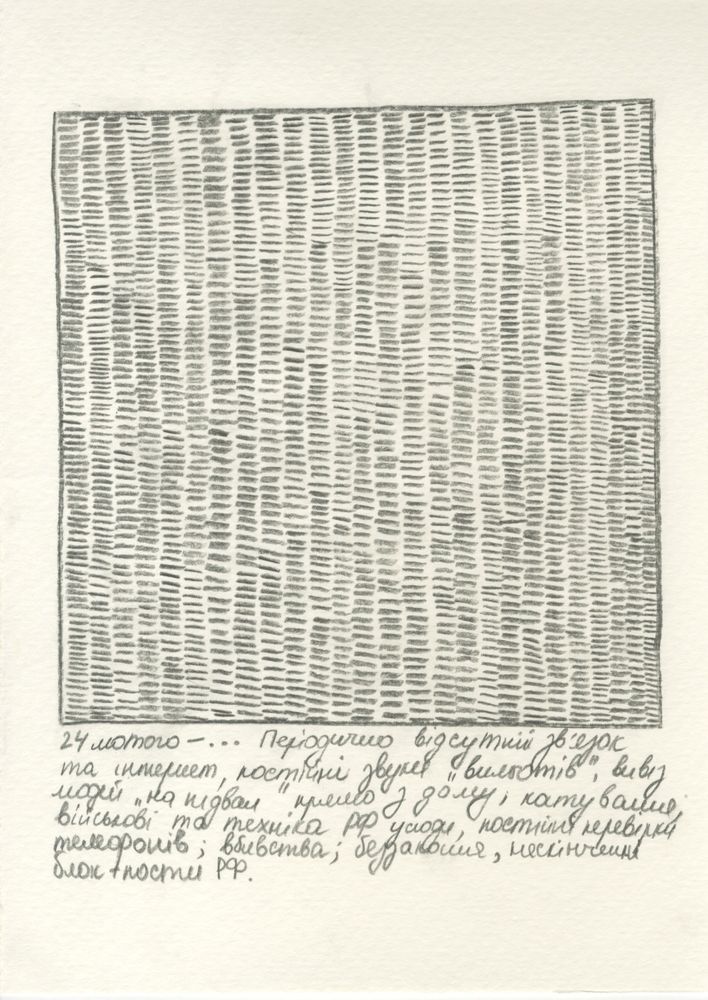 24 лютого – ... Періодично відсутній зв'язок
та інтернет, постійні звуки "вильотів", вивіз
людей "на підвал" прямо з дому; катування;
військові та техніка РФ усюди, постійні перевірки
телефонів; вбивства; беззаконня, нескінченні
блок-пости РФ.